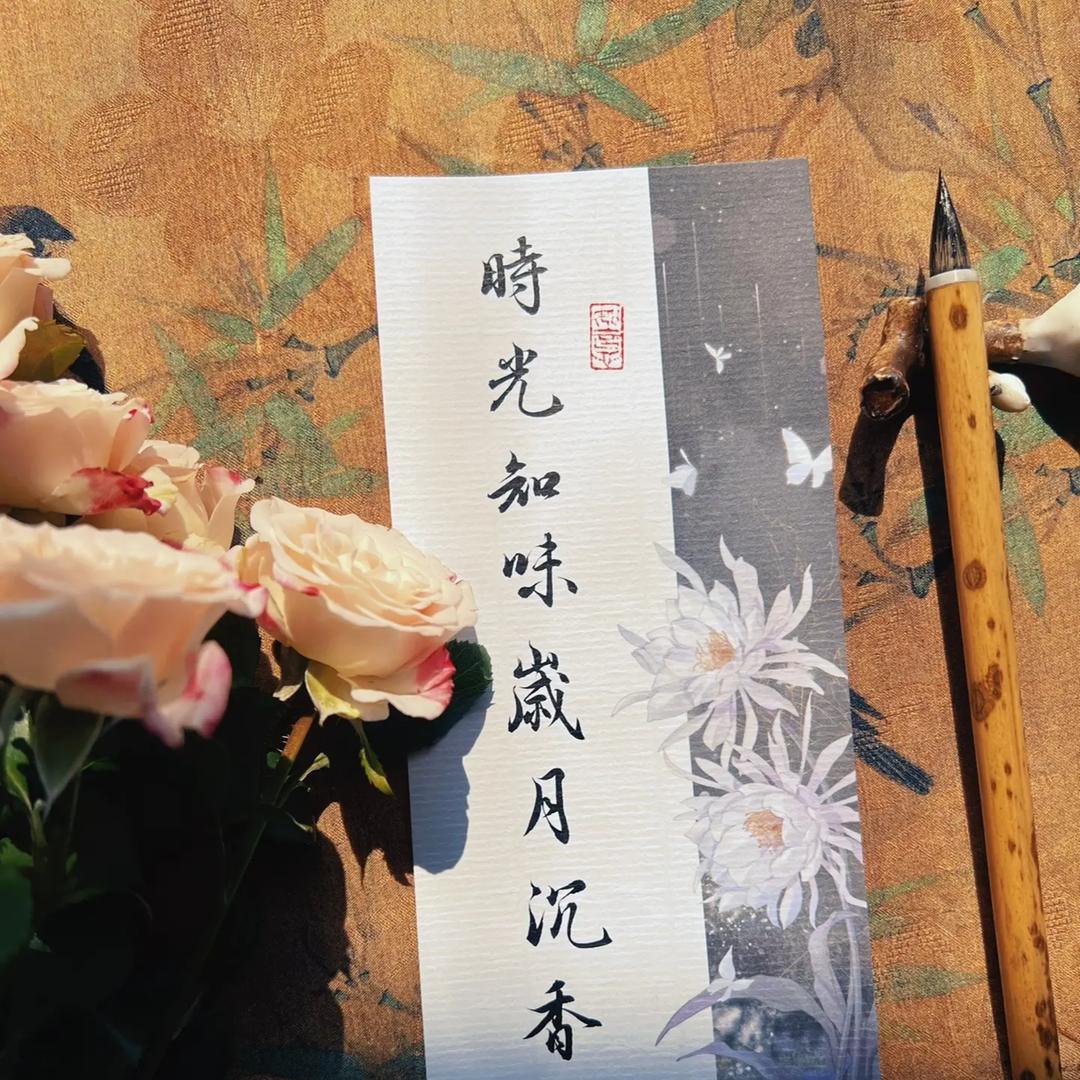 時光知味歲月沉香